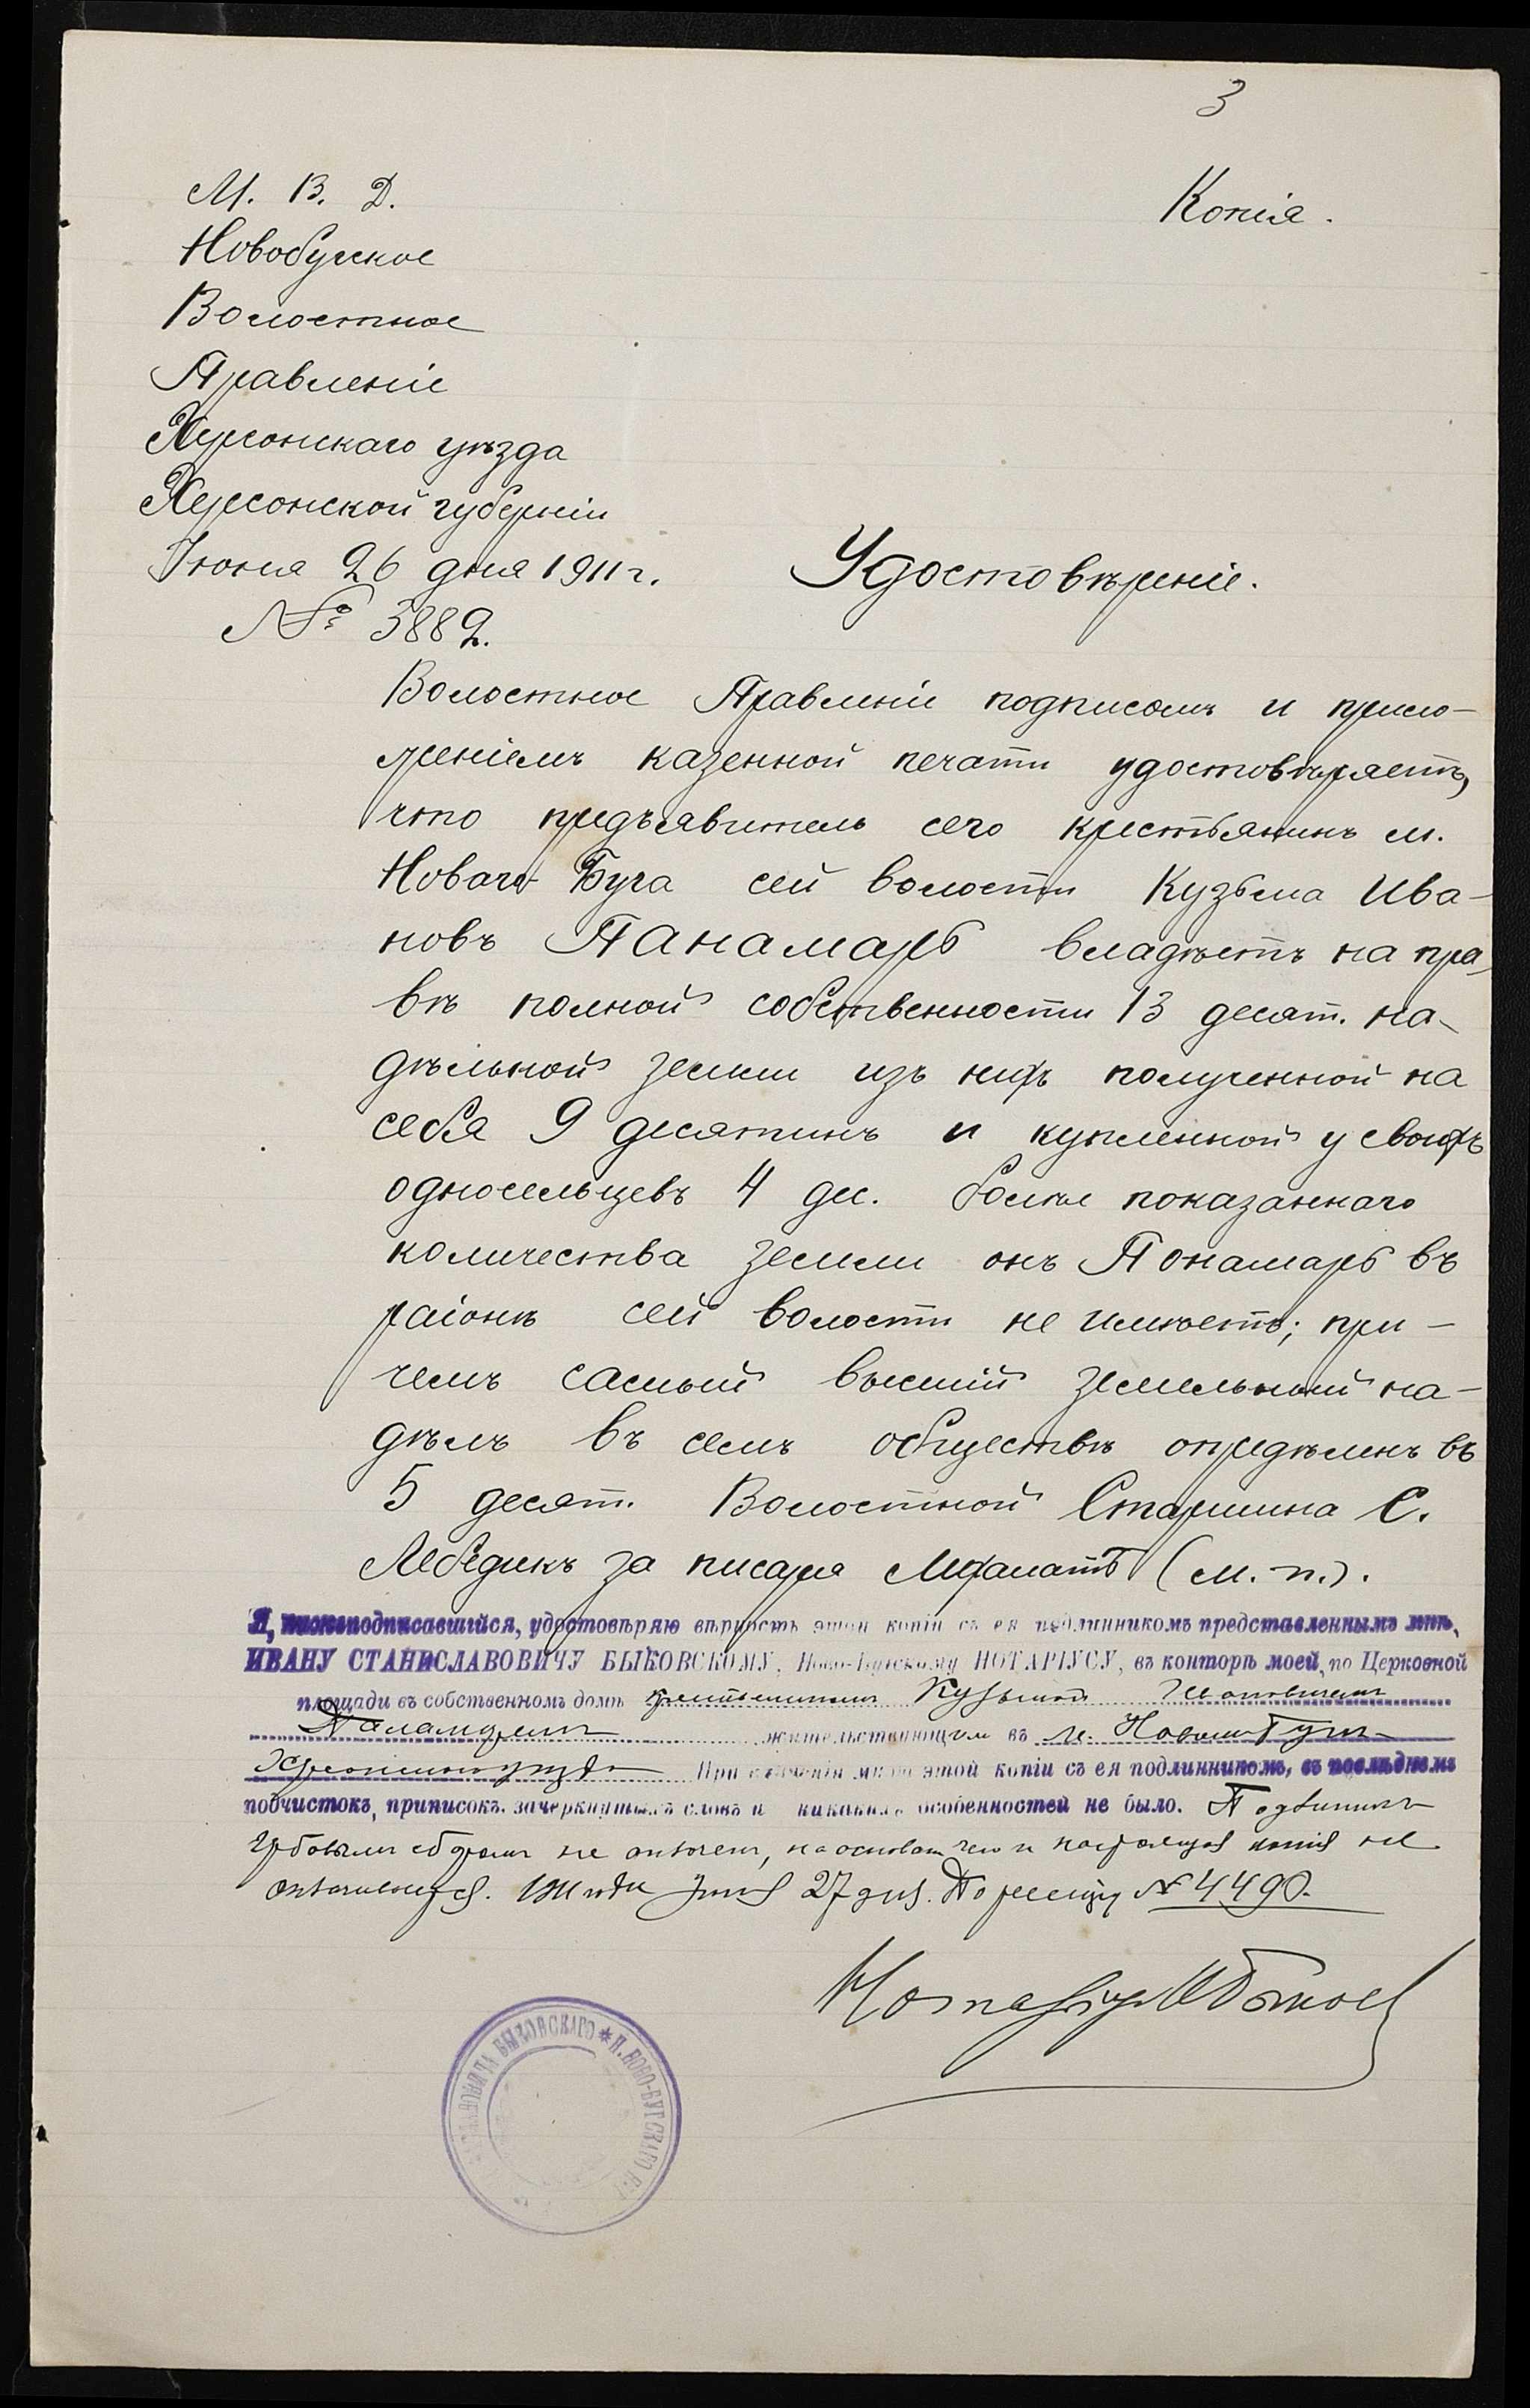 3
М. В. Д.
Копія.
Новобугское
Волостное
Правленіе
Херсонскаго уѣзда
Херсонской губерніи
Іюня 26 дня 1911 г.
Удостовѣреніе.
№ 3882.
Волостное Правленіе подписомъ и прило-
женіемъ казенной печати удостовѣряетъ,
что предъявитель сего крестьянинъ м.
Новаго Буга сей волости Кузьма Ива-
новъ Панамарь владѣетъ на пра-
вѣ полной собственности 13 десят. на-
дѣльной земли изъ нихъ полученной на
себя 9 десятинъ и купленной у своихъ
односельцевъ 4 дес. болѣе показаннаго
количества земли онъ Понамарь въ
раіонѣ сей волости не имѣетъ; при-
чемъ самый высшій земельный на-
дѣлъ въ семъ обществѣ опредѣленъ въ
5 десят. Волостной Старшина С.
Лебедикъ за писаря (м. п.).
Я, нижеподписавшійся, удостовѣряю вѣрность этой копіи съ ея подлинникомъ представленнымъ мнѣ,
ИВАНУ СТАНИСЛАВОВИЧУ БЫКОВСКОМУ, Ново-Бугскому НОТАРІУСУ, въ конторѣ моей, по Церковной
площади въ собственномъ домѣ крестьяниномъ Кузьмой Ивановичемъ
жительствующимъ въ м. Новомъ-Бугѣ
Херсонскаго уѣзда При сличеніи мною этой копіи съ ея подлинникомъ, въ послѣднемъ
подчистокъ, приписокъ, зачеркнутыхъ словъ и никакихъ особенностей не было. Подлинникъ
гербовымъ сборомъ не оплаченъ, на основан. чего и настоящая копія не
оплачивается. 1911 года Іюня 27 дня. По реестру № 4490.
Нотаріусъ И Быковскій
БЫКОВСКАГО * Н. НОВО-БУГСКАГО